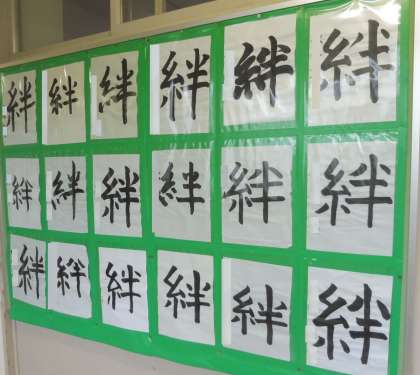 絆 絆 絆 絆 絆 絆
絆 絆 絆 絆 絆 絆
絆 絆 絆 絆 絆 絆